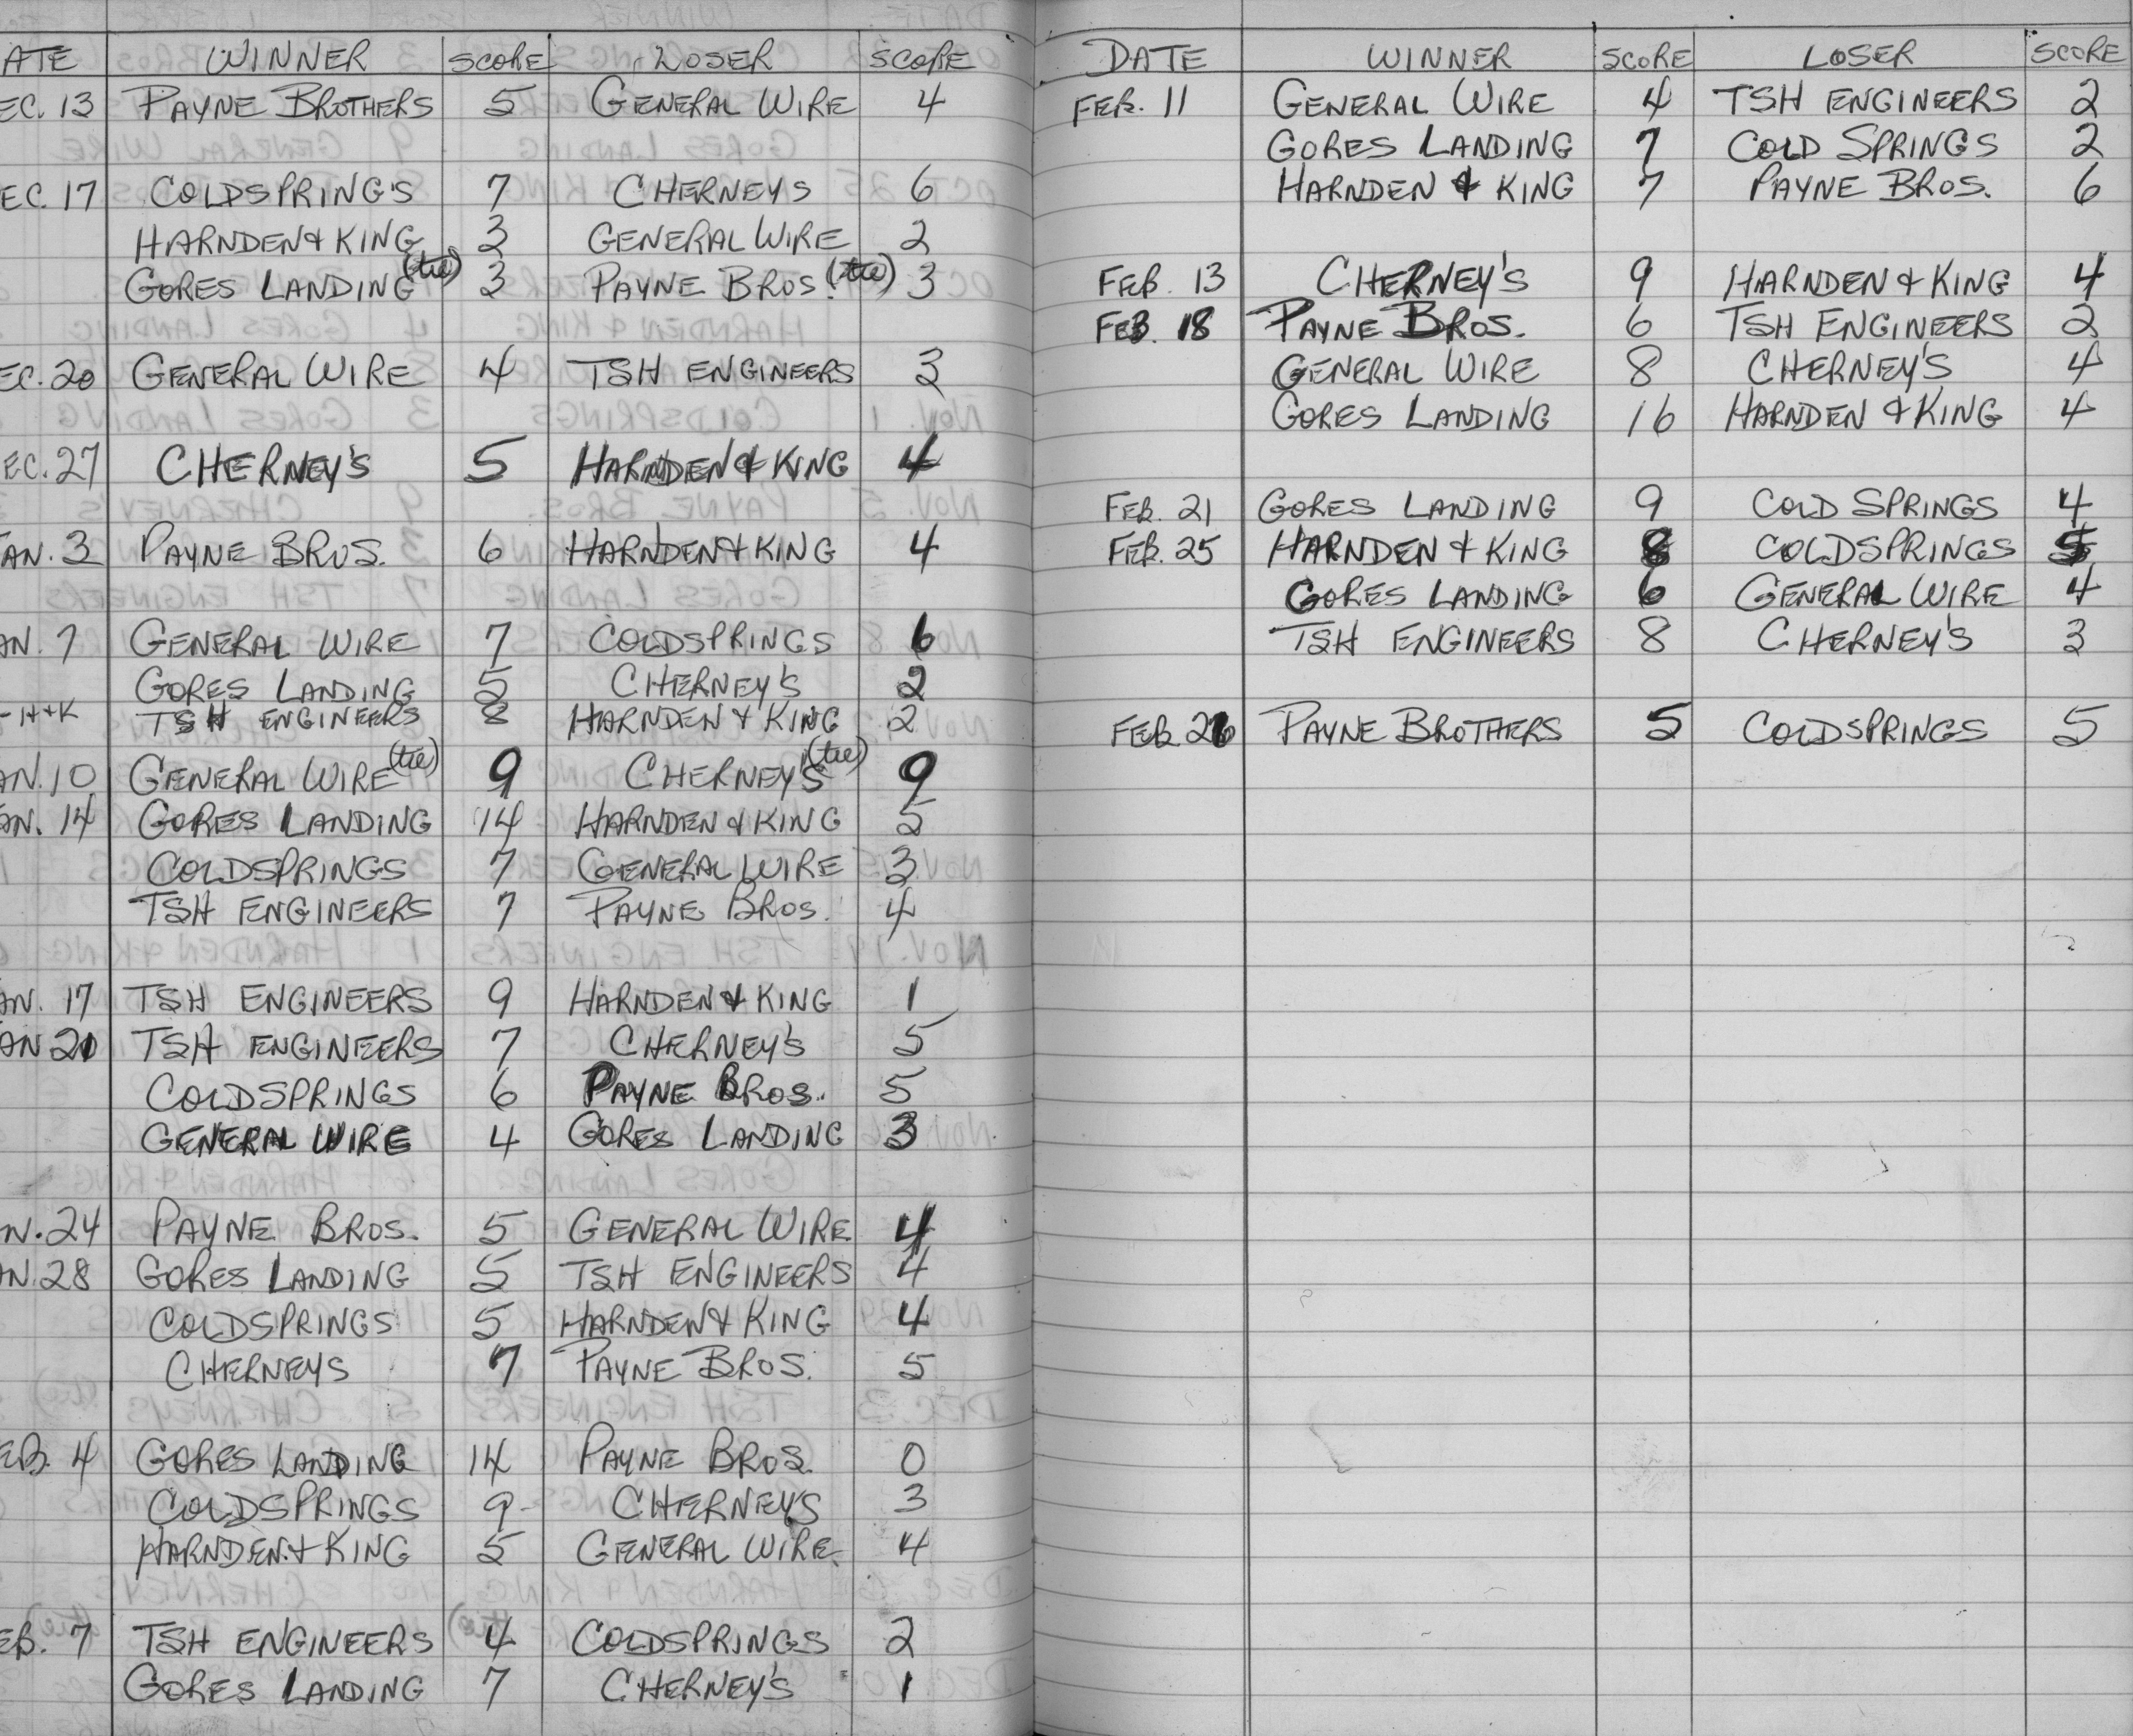 ATE WINNER SCORE LOSER SCORE
EC. 13 PAYNE BROTHERS 5 GENERAL WIRE 4
EC. 17 COLDSPRING'S 7 CHERNEYS 6
HARNDEN & KING 3 GENERAL WIRE 2
GORES LANDING (tie) 3 PAYNE BROS. (tie) 3
EC. 20 GENERAL WIRE 4 TSH ENGINEERS 3
EC. 27 CHERNEY'S 5 HARNDEN & KING 4
AN. 3 PAYNE BROS. 6 HARNDEN & KING 4
AN. 7 GENERAL WIRE 7 COLDSPRINGS 6
GORES LANDING 5 CHERNEY'S 2
- H+K TSH ENGINEERS 8 HARNDEN & KING 2
AN. 10 GENERAL WIRE (tie) 9 CHERNEY'S (tie) 9
AN. 14 GORES LANDING 14 HARNDEN & KING 5
COLDSPRINGS 7 GENERAL WIRE 3
TSH ENGINEERS 7 PAYNE BROS. 4
AN. 17 TSH ENGINEERS 9 HARNDEN & KING 1
AN 21 TSH ENGINEERS 7 CHERNEY'S 5
COLDSPRINGS 6 PAYNE BROS. 5
GENERAL WIRE 4 GORES LANDING 3
N. 24 PAYNE BROS. 5 GENERAL WIRE 4
AN. 28 GORES LANDING 5 TSH ENGINEERS 4
COLDSPRINGS 5 HARNDEN & KING 4
CHERNEYS 7 PAYNE BROS. 5
EB. 4 GORES LANDING 14 PAYNE BROS. 0
COLDSPRINGS 9 CHERNEY'S 3
HARNDEN & KING 5 GENERAL WIRE 4
EB. 7 TSH ENGINEERS 4 COLDSPRINGS 2
GORES LANDING 7 CHERNEY'S 1
DATE WINNER SCORE LOSER SCORE
FEB. 11 GENERAL WIRE 4 TSH ENGINEERS 2
GORES LANDING 7 COLD SPRINGS 2
HARNDEN & KING 7 PAYNE BROS. 6
FEB. 13 CHERNEY'S 9 HARNDEN & KING 4
FEB. 18 PAYNE BROS. 6 TSH ENGINEERS 2
GENERAL WIRE 8 CHERNEY'S 4
GORES LANDING 16 HARNDEN & KING 4
FEB. 21 GORES LANDING 9 COLD SPRINGS 4
FEB. 25 HARNDEN & KING 8 COLDSPRINGS 5
GORES LANDING 6 GENERAL WIRE 4
TSH ENGINEERS 8 CHERNEY'S 3
FEB. 26 PAYNE BROTHERS 5 COLDSPRINGS 5